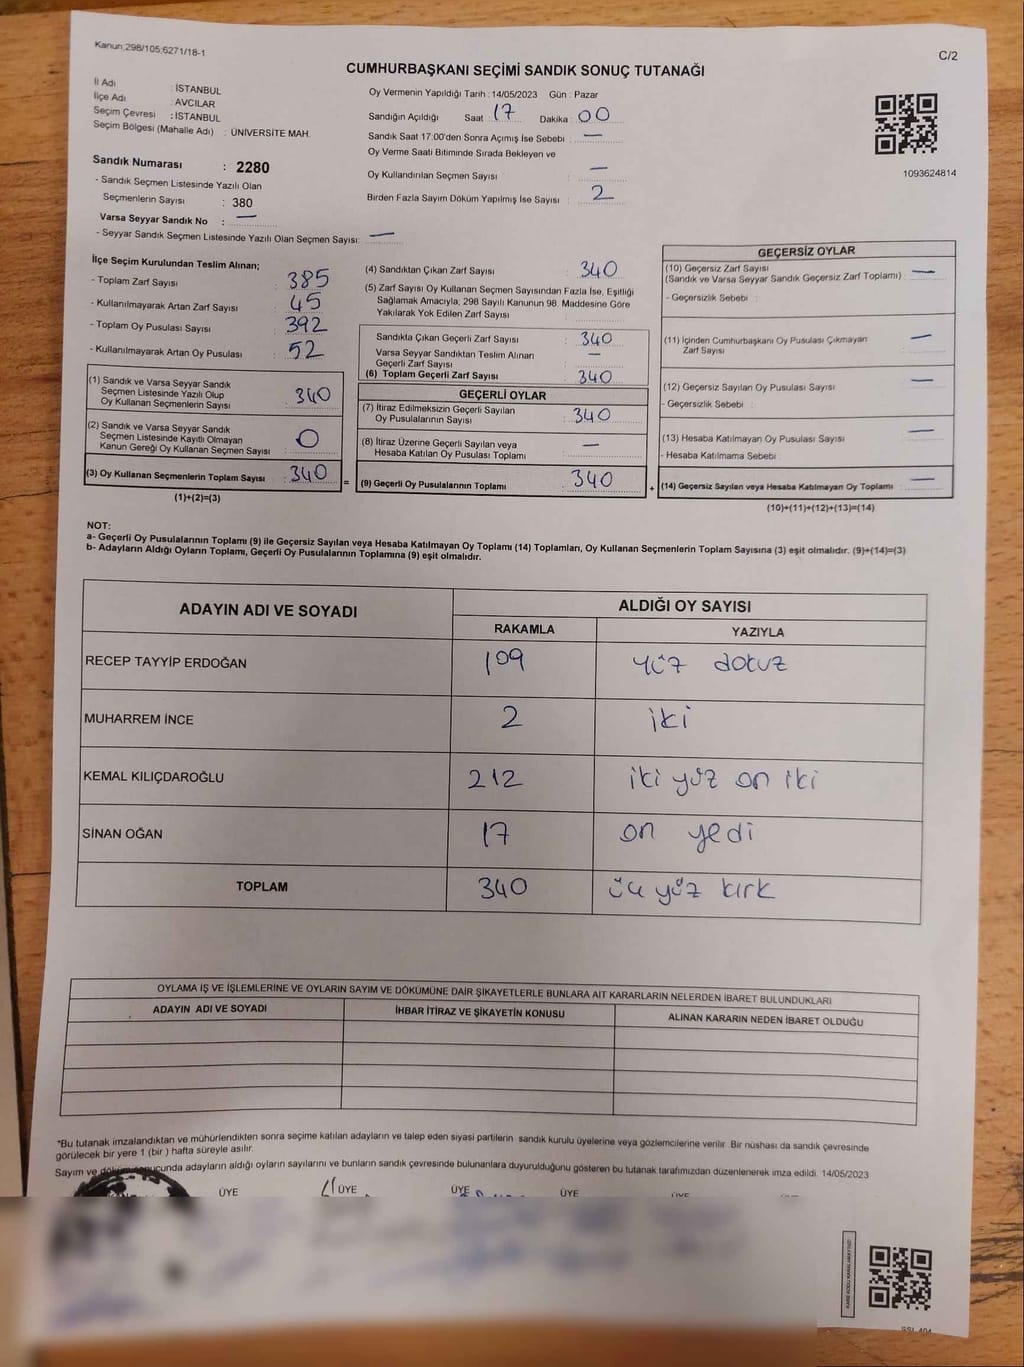 Kanun;298/105;6271/18-1
C/2
CUMHURBAŞKANI SEÇİMİ SANDIK SONUÇ TUTANAĞI
İl Adı : İSTANBUL
İlçe Adı : AVCILAR
Seçim Çevresi : İSTANBUL
Seçim Bölgesi (Mahalle Adı) : ÜNİVERSİTE MAH.
Sandık Numarası : 2280
- Sandık Seçmen Listesinde Yazılı Olan
Seçmenlerin Sayısı : 380
Varsa Seyyar Sandık No : —
- Seyyar Sandık Seçmen Listesinde Yazılı Olan Seçmen Sayısı: —
Oy Vermenin Yapıldığı Tarih : 14/05/2023 Gün : Pazar
Sandığın Açıldığı Saat : 17 Dakika : 00
Sandık Saat 17:00'den Sonra Açımış İse Sebebi : —
Oy Verme Saati Bitiminde Sırada Bekleyen ve
Oy Kullandırılan Seçmen Sayısı : —
Birden Fazla Sayım Döküm Yapılmış İse Sayısı : 2
1093624814
İlçe Seçim Kurulundan Teslim Alınan;
- Toplam Zarf Sayısı : 385
- Kullanılmayarak Artan Zarf Sayısı : 45
- Toplam Oy Pusulası Sayısı : 392
- Kullanılmayarak Artan Oy Pusulası : 52
(1) Sandık ve Varsa Seyyar Sandık
Seçmen Listesinde Yazılı Olup
Oy Kullanan Seçmenlerin Sayısı : 340
(2) Sandık ve Varsa Seyyar Sandık
Seçmen Listesinde Kayıtlı Olmayan
Kanun Gereği Oy Kullanan Seçmen Sayısı : 0
(3) Oy Kullanan Seçmenlerin Toplam Sayısı : 340
(1)+(2)=(3)
(4) Sandıktan Çıkan Zarf Sayısı : 340
(5) Zarf Sayısı Oy Kullanan Seçmen Sayısından Fazla İse, Eşitliği
Sağlamak Amacıyla; 298 Sayılı Kanunun 98. Maddesine Göre
Yakılarak Yok Edilen Zarf Sayısı :
Sandıkta Çıkan Geçerli Zarf Sayısı : 340
Varsa Seyyar Sandıktan Teslim Alınan
Geçerli Zarf Sayısı : —
(6) Toplam Geçerli Zarf Sayısı : 340
GEÇERLİ OYLAR
(7) İtiraz Edilmeksizin Geçerli Sayılan
Oy Pusulalarının Sayısı : 340
(8) İtiraz Üzerine Geçerli Sayılan veya
Hesaba Katılan Oy Pusulası Toplamı : —
= (9) Geçerli Oy Pusulalarının Toplamı : 340
GEÇERSİZ OYLAR
(10) Geçersiz Zarf Sayısı
(Sandık ve Varsa Seyyar Sandık Geçersiz Zarf Toplamı) : —
- Geçersizlik Sebebi :
(11) İçinden Cumhurbaşkanı Oy Pusulası Çıkmayan
Zarf Sayısı : —
(12) Geçersiz Sayılan Oy Pusulası Sayısı : —
- Geçersizlik Sebebi :
(13) Hesaba Katılmayan Oy Pusulası Sayısı : —
- Hesaba Katılmama Sebebi :
+ (14) Geçersiz Sayılan veya Hesaba Katılmayan Oy Toplamı : —
(10)+(11)+(12)+(13)=(14)
NOT:
a- Geçerli Oy Pusulalarının Toplamı (9) ile Geçersiz Sayılan veya Hesaba Katılmayan Oy Toplamı (14) Toplamları, Oy Kullanan Seçmenlerin Toplam Sayısına (3) eşit olmalıdır. (9)+(14)=(3)
b- Adayların Aldığı Oyların Toplamı, Geçerli Oy Pusulalarının Toplamına (9) eşit olmalıdır.
ADAYIN ADI VE SOYADI
ALDIĞI OY SAYISI
RAKAMLA YAZIYLA
RECEP TAYYİP ERDOĞAN 109 yüz dokuz
MUHARREM İNCE 2 iki
KEMAL KILIÇDAROĞLU 212 iki yüz on iki
SİNAN OĞAN 17 on yedi
TOPLAM 340 üç yüz kırk
OYLAMA İŞ VE İŞLEMLERİNE VE OYLARIN SAYIM VE DÖKÜMÜNE DAİR ŞİKAYETLERLE BUNLARA AİT KARARLARIN NELERDEN İBARET BULUNDUKLARI
ADAYIN ADI VE SOYADI İHBAR İTİRAZ VE ŞİKAYETİN KONUSU ALINAN KARARIN NEDEN İBARET OLDUĞU
*Bu tutanak imzalandıktan ve mühürlendikten sonra seçime katılan adayların ve talep eden siyasi partilerin sandık kurulu üyelerine veya gözlemcilerine verilir. Bir nüshası da sandık çevresinde
görülecek bir yere 1 (bir ) hafta süreyle asılır.
Sayım ve döküm sonucunda adayların aldığı oyların sayılarını ve bunların sandık çevresinde bulunanlara duyurulduğunu gösteren bu tutanak tarafımızdan düzenlenerek imza edildi. 14/05/2023
ÜYE ÜYE ÜYE ÜYE ÜYE